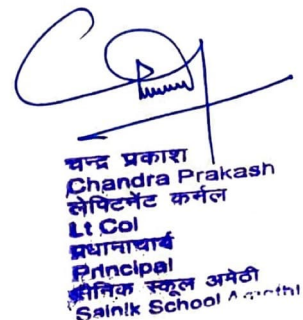 चन्द्र प्रकाश
Chandra Prakash
लेफ्टिनेंट कर्नल
Lt Col
प्रधानाचार्य
Principal
सैनिक स्कूल अमेठी
Sainik School Amethi